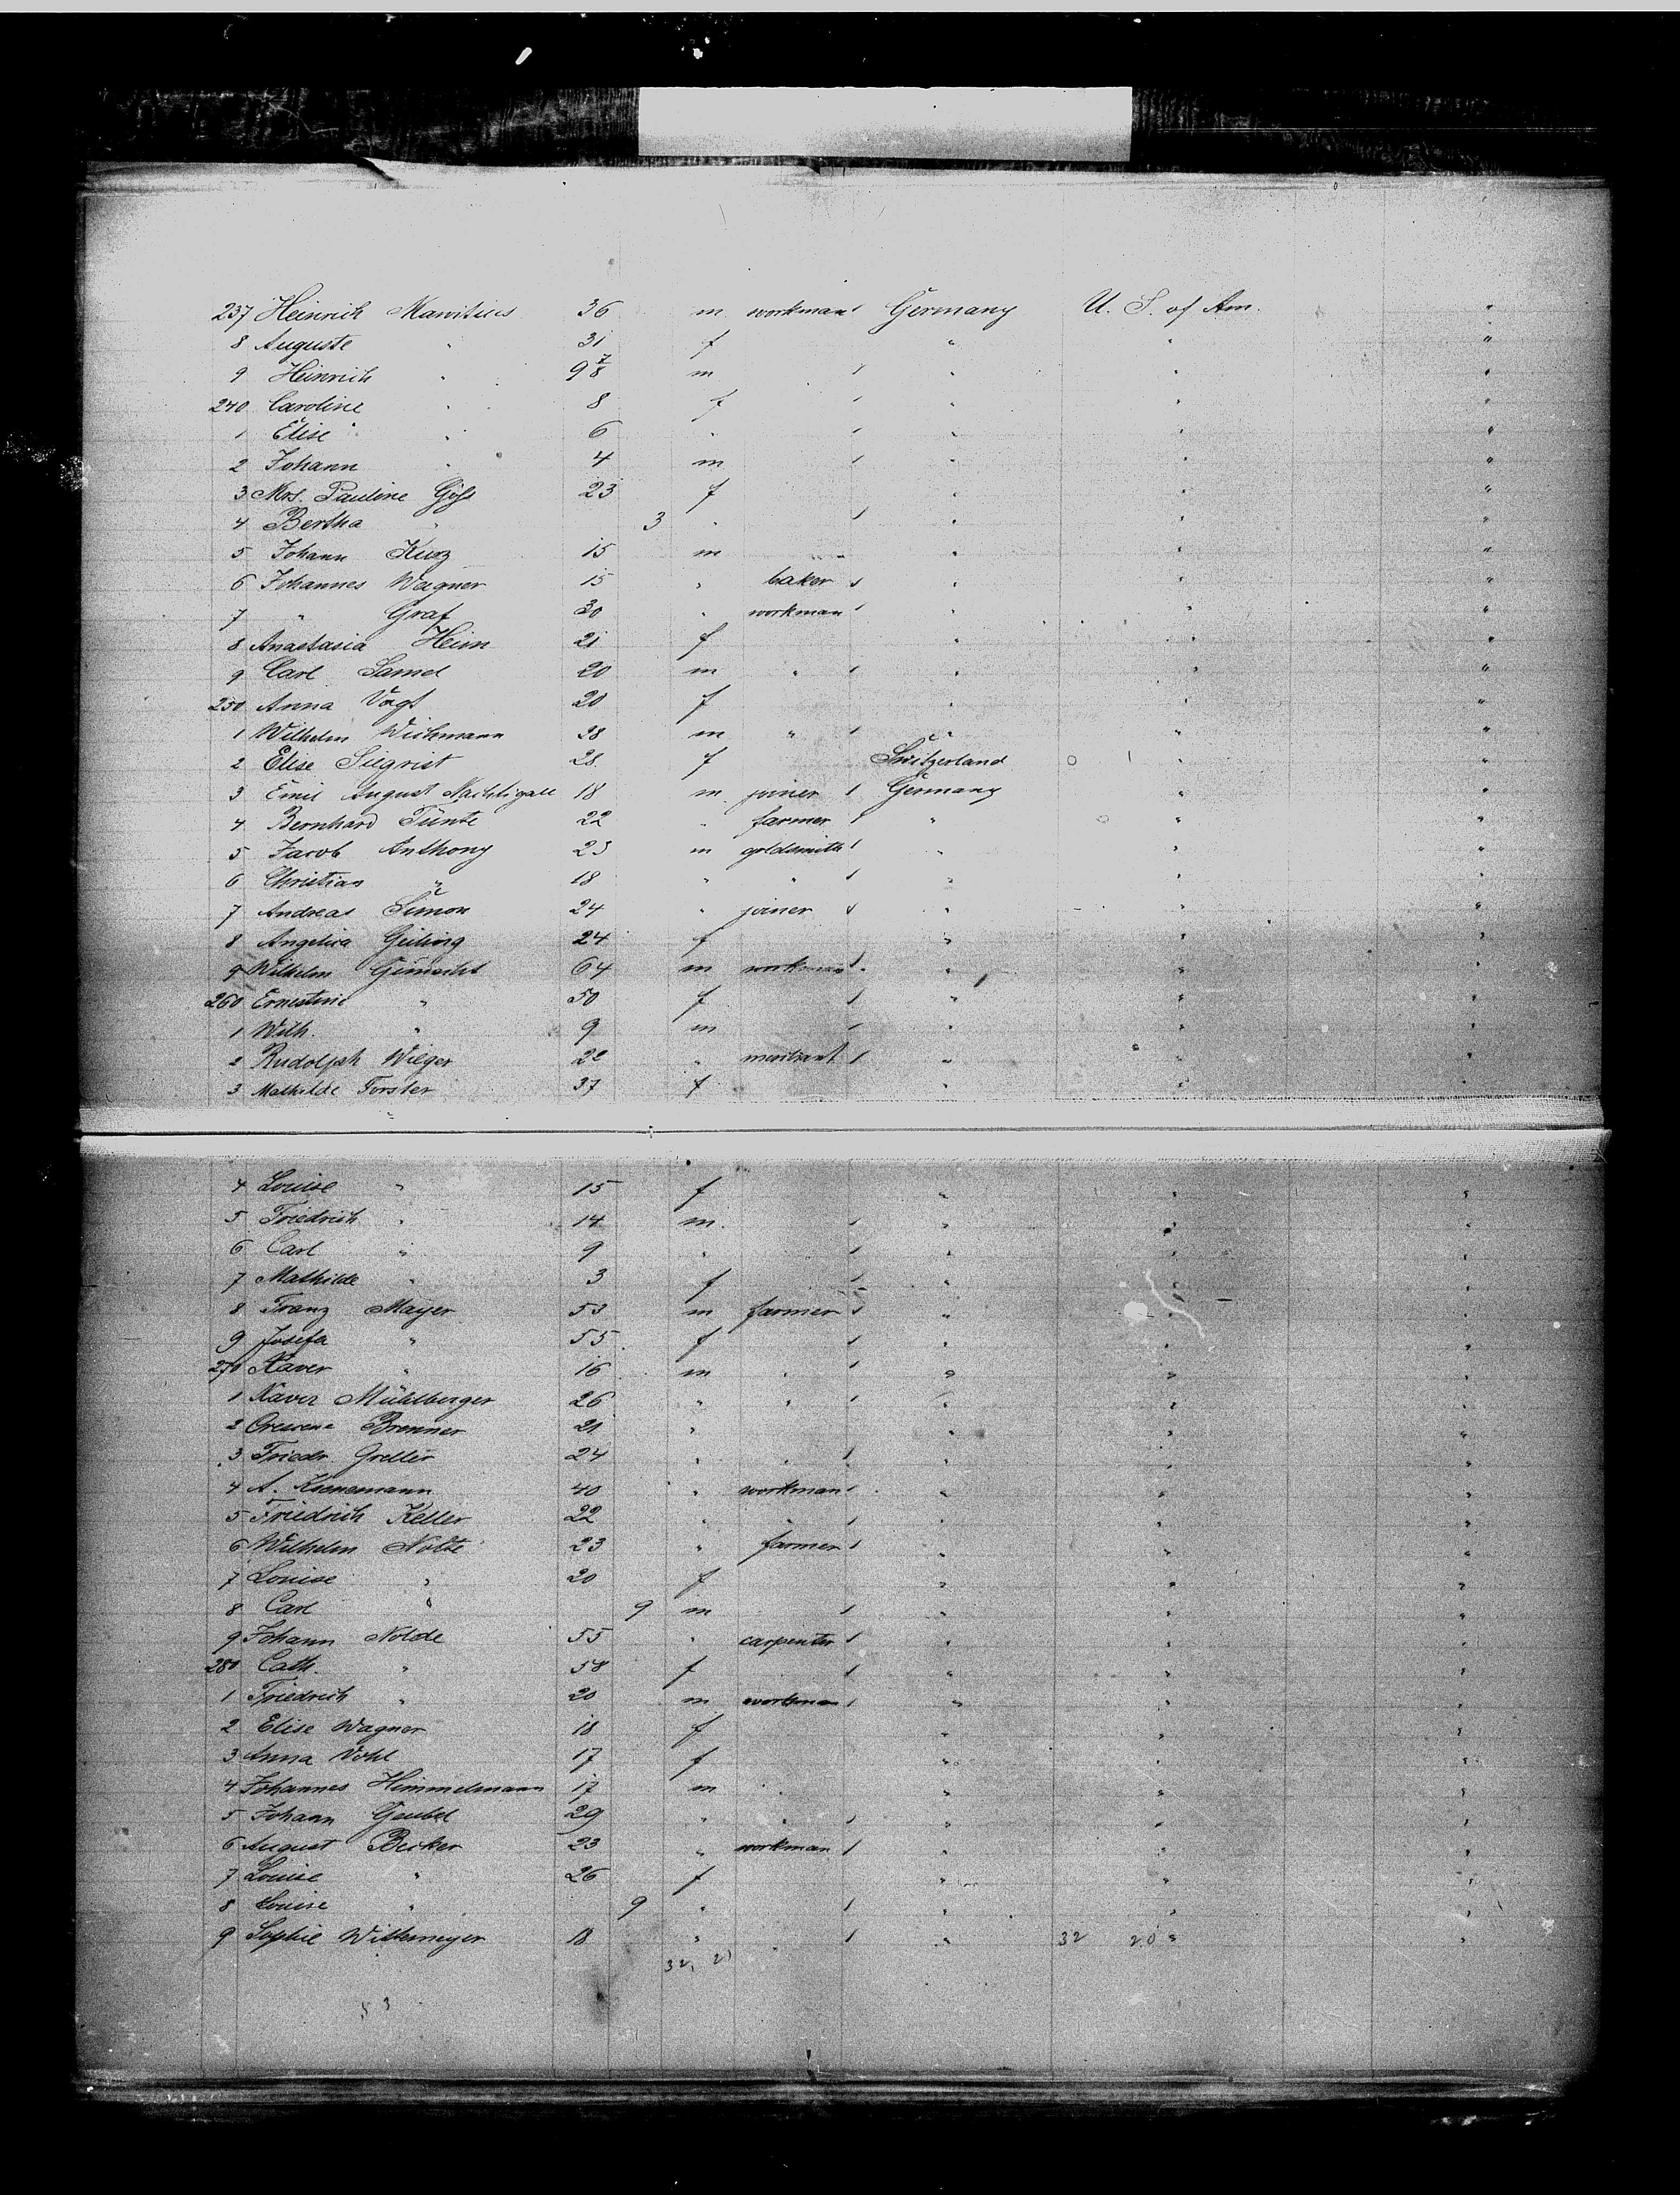 237 Heinrich Mauritius 36 m workman Germany U. S. of Am. "
8 Auguste " 31 f " " "
9 Heinrich " 9 m " " "
240 Caroline " 8 f " " "
1 Elise " 6 " " " "
2 Johann " 4 m " " "
3 Mrs. Pauline 23 f " " "
4 Bertha " 3 " " " "
5 Johann Kurz 15 m " " "
6 Johannes Wagner 15 " baker " " "
7 " Graf 30 " workman " " "
8 Anastasia Heim 21 f " " "
9 Carl 20 m " " " "
250 Anna Vogt 20 f " " "
1 Wilhelm Wichmann 28 m " " " "
2 Elise Siegrist 28 f Switzerland " "
3 Emil August Nachtigall 18 m joiner Germany " "
4 Bernhard 22 " farmer " " "
5 Jacob Anthony 23 m goldsmith " " "
6 Christian " 18 " " " " "
7 Andreas Simon 24 " joiner " " "
8 Angelica Geiling 24 f " " "
9 Wilhelm 64 m workman " " "
260 Ernestine " 50 f " " "
1 Wilh. " 9 m " " "
2 Rudolph Wieger 22 " merchant " " "
3 Mathilde Forster 37 f " " "
4 Louise " 15 f " " "
5 Friedrich " 14 m " " "
6 Carl " 9 " " " "
7 Mathilde " 3 f " " "
8 Franz Mayer 53 m farmer " " "
9 Josefa " 55 f " " "
270 Xaver " 16 m " " " "
1 Xaver Mühlberger 26 " " " " "
2 Brenner 21 " " " "
3 Friedr. 24 " " " " "
4 A. 40 " workman " " "
5 Friedrich Keller 22 " " " " "
6 Wilhelm Nolte 23 " farmer " " "
7 Louise " 20 f " " "
8 Carl " 9 m " " "
9 Johann Nolde 55 " carpenter " " "
280 Cath. " 58 f " " "
1 Friedrich " 20 m workman " " "
2 Elise Wagner 18 f " " "
3 Anna Vohl 17 f " " "
4 Johannes Himmelmann 17 m " " " "
5 Johann Geubel 29 " " " " "
6 August Becker 23 " workman " " "
7 Louise " 26 f " " "
8 Louise " 9 " " " "
9 Sophie 18 " " 32 20 " "
53